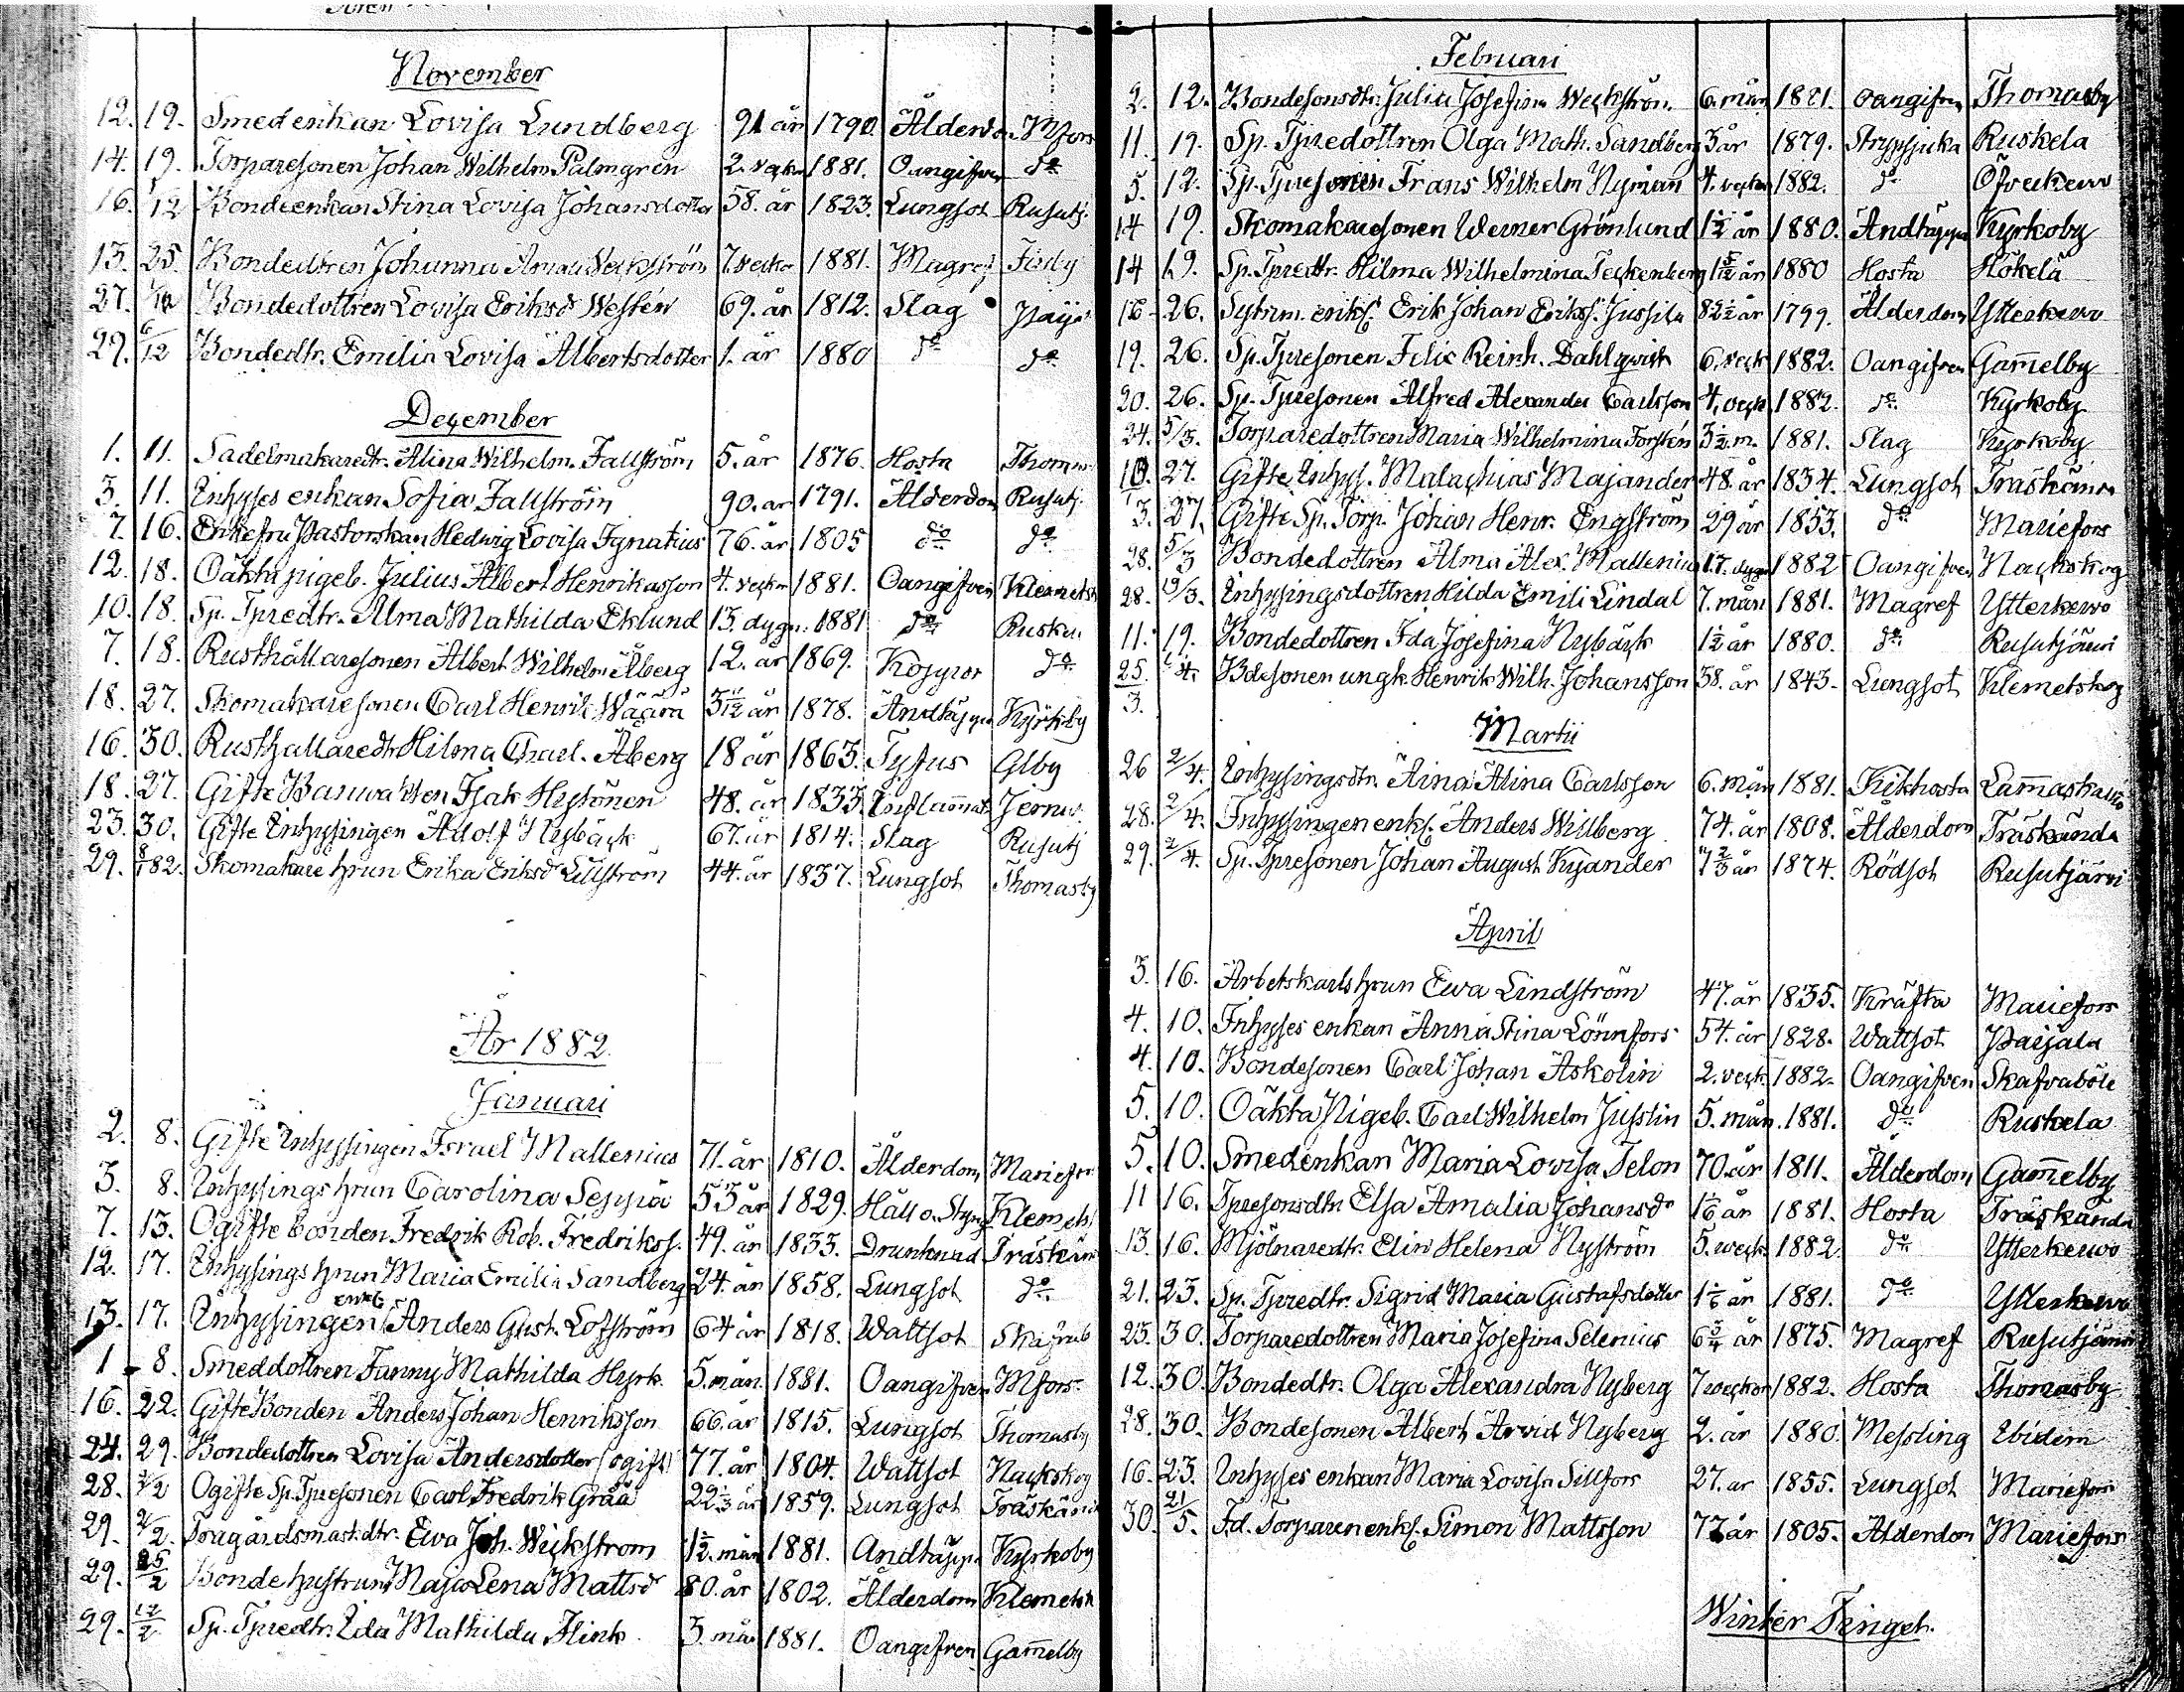 November
12. 19. Smedenkan Lovisa Lundberg 91 år 1790. Ålderdo Mfors
14. 19. Torparesonen Johan Wilhelm Palmgren 2. veckor 1881. Oangifven do
16. 1/12 Bondeenkan Stina Lovisa Johansdotter 58. år 1823. Lungsot Rusutj.
13. 25. Bondedtren Johanna Amali Weckström 7. veckor 1881. Magref
27. Bondedottren Lovisa Eriksdr Westén 69. år 1812. Slag
29. 6/12 Bondedtr. Emilia Lovisa Albertsdotter 1. år 1880 do do
December
1. 11. Sadelmakaredtr. Alina Wilhelm. Fallström 5. år 1876. Hosta Thomas
3. 11. Inhyses enkan Sofia Fallström 90. ar 1791. Ålderdom Rusutj.
7. 16. Enkefru Pastorskan Hedwig Lovisa Ignatius 76. år 1805 do do
12. 18. Oäkta pigeb. Julius Albert Henriksson 4. veckor 1881. Oangifven Klemetsk
10. 18. Sp. Tpredtr. Alma Mathilda Eklund 13. dygn. 1881 do Ruske
7. 18. Rusthållaresonen Albert Wilhelm Åberg 12. år 1869. Koppor do
18. 27. Skomakaresonen Carl Henrik Wäärä 3 11/12 år 1878. Andtäppa Kyrkby
16. 30. Rusthallaredtr Hilma Charl. Åberg 18 år 1863. Tyfus Glby
18. 27. Gifte Banvakten Isak Hytönen 48. år 1833. Inflammat. Jernv.
23. 30. Gifte Inhysingen Adolf Nybäck 67. år 1814. Slag Rusutj
29. 8/1 82. Skomakare hrun Erika Eriksdr Lillström 44. år 1837. Lungsot Thomasby
År 1882.
Januari
2. 8. Gifte Inhysingen Israel Mallenius 71. år 1810. Ålderdom Mariefors
3. 8. Inhysings hrun Carolina Seppiä 53 år 1829. Håll o. Styng Klemets
7. 13. Ogifte bonden Fredrik Rob. Fredrikss. 49. år 1833. Drunknad Träskän
12. 17. Inhysings hrun Maria Emilia Sandberg 24. år 1858. Lungsot do
13. 17. Inhysingen enkl. Anders Gust. Lofström 64 år 1818. Wattsot Skafrab
1 - 8. Smeddottren Fanny Mathilda Hyrk. 5. mån. 1881. Oangifven Mfors.
16. 22. Gifte Bonden Anders Johan Henriksson 66. år 1815. Lungsot Thomasby
24. 29. Bondedottren Lovisa Andersdotter (ogift) 77. år 1804. Wattsot Nackskog
28. 2/2 Ogifte Sp. Tpresonen Carl Fredrik Gråå 22 1/3 år 1859. Lungsot Träskänd
29. 2/2. Trägårdsmast.dtr. Ewa Joh. Wickstrom 1 1/2. mån 1881. Andtäppa Kyrkoby
29. 25/2 Bonde hustrun Maja Lena Mattsdr 80. år 1802. Ålderdom Klemetsk
29. 12/2 Sp. Tpredtr. Ida Mathilda Flink 3. mån 1881. Oangifven Gam̄elby
Februari
2. 12. Bondesonsdtr. Julia Josefina Weckström. 6. mån 1881. Oangifven Thomasby
11. 19. Sp. Tpredottren Olga Math. Sandberg 3 år 1879. Strypsjuka Ruskela
5. 12. Sp. Tpresonen Frans Wilhelm Nyman 4. veckor 1882. do Öfverkervo
14 19. Skomakaresonen Werner Grönlund 1 1/2 år 1880. Andtäppa Kyrkoby
14 19. Sp. Tpredtr. Hilma Wilhelmina Teckenberg 1 5/12 år 1880 Hosta Hökelä
16 - 26. Sytnm. enkl. Erik Johan Erikss. Jussila 82 1/2 år 1799. Ålderdom Ytterkervo
19. 26. Sp. Tpresonen Felix Reinh. Dahlqvist 6. veck 1882. Oangifven Gam̄elby
20. 26. Sp. Tpresonen Alfred Alexander Carlsson 4. veck. 1882. do Kyrkoby
24. 5/3. Torparedottren Maria Wilhelmina Forstén 3 1/2. m. 1881. Slag Kyrkoby
10 27. Gifte Inhys. Malachias Majander 48. år 1834. Lungsot Träskända
3. 27. Gifte Sp. Torp. Johan Henr. Engström 29 år 1853. do Mariefors
28. 5/3 Bondedottren Alma Alex. Mallenius 17. dygn 1882 Oangifven Nackskog
28. 19/3. Inhysingsdottren Hilda Emili Lindal 7. mån 1881. Magref Ytterkervo
11. 19. Bondedottren Ida Josefina Nybäck 1 1/2 år 1880. do Rusutjärvi
25. /4. Bdesonen ungk. Henrik Wilh. Johansson 38. år 1843. Lungsot Klemetskog
3.
Martii
26 2/4. Inhysingsdtr. Aina Alina Carlsson 6. mån 1881. Kikhosta Lam̄askallio
28. 2/4. Inhysingen enkl. Anders Willberg 74. år 1808. Ålderdom Träskända
29. 2/4. Sp. Tpresonen Johan August Kyander 7 2/3 år 1874. Rödsot Rusutjärvi
April
3. 16. Arbetskarls hrun Ewa Lindström 47. år 1835. Kräfta Mariefors
4. 10. Inhyses enkan Anna Stina Lönnfors 54. år 1828. Wattsot Parjala
4. 10. Bondesonen Carl Johan Askolin 2. veck. 1882. Oangifven Skafvaböle
5. 10. Oäkta Pigeb. Carl Wilhelm Jusslin 5. mån. 1881. do Ruskela
5. 10. Smedenkan Maria Lovisa Telon 70. år 1811. Ålderdom Gam̄elby
11 16. Tpresonsdtr. Elsa Amalia Johansdr 1 1/6 år 1881. Hosta Träskända
13. 16. Mjölnaredtr. Elin Helena Nyström 5. weck. 1882. do Ytterkervo
21. 23. Sp. Tpredtr. Sigrid Maria Gustafsdotter 1 1/6 år 1881. do Ytterkervo
23. 30. Torparedottren Maria Josefina Selenius 6 3/4 år 1875. Magref Rusutjärvi
12. 30. Bondedtr. Olga Alexandra Nyberg 7 weckor 1882. Hosta Thomasby
28. 30. Bondesonen Albert Arvid Nyberg 2. år 1880. Messling Ibidem
16. 23. Inhyses enkan Maria Lovisa Sillfors 27. ar 1855. Lungsot Mariefors
30. 21/5. F.d. Torparen enkl. Simon Mattsson 77 år 1805. Ålderdom Mariefors
Winter Tinget.